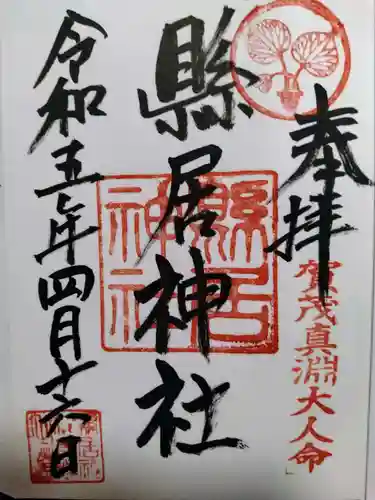 奉拝
賀茂真淵大人命
縣居神社
縣居神社
令和五年四月十六日